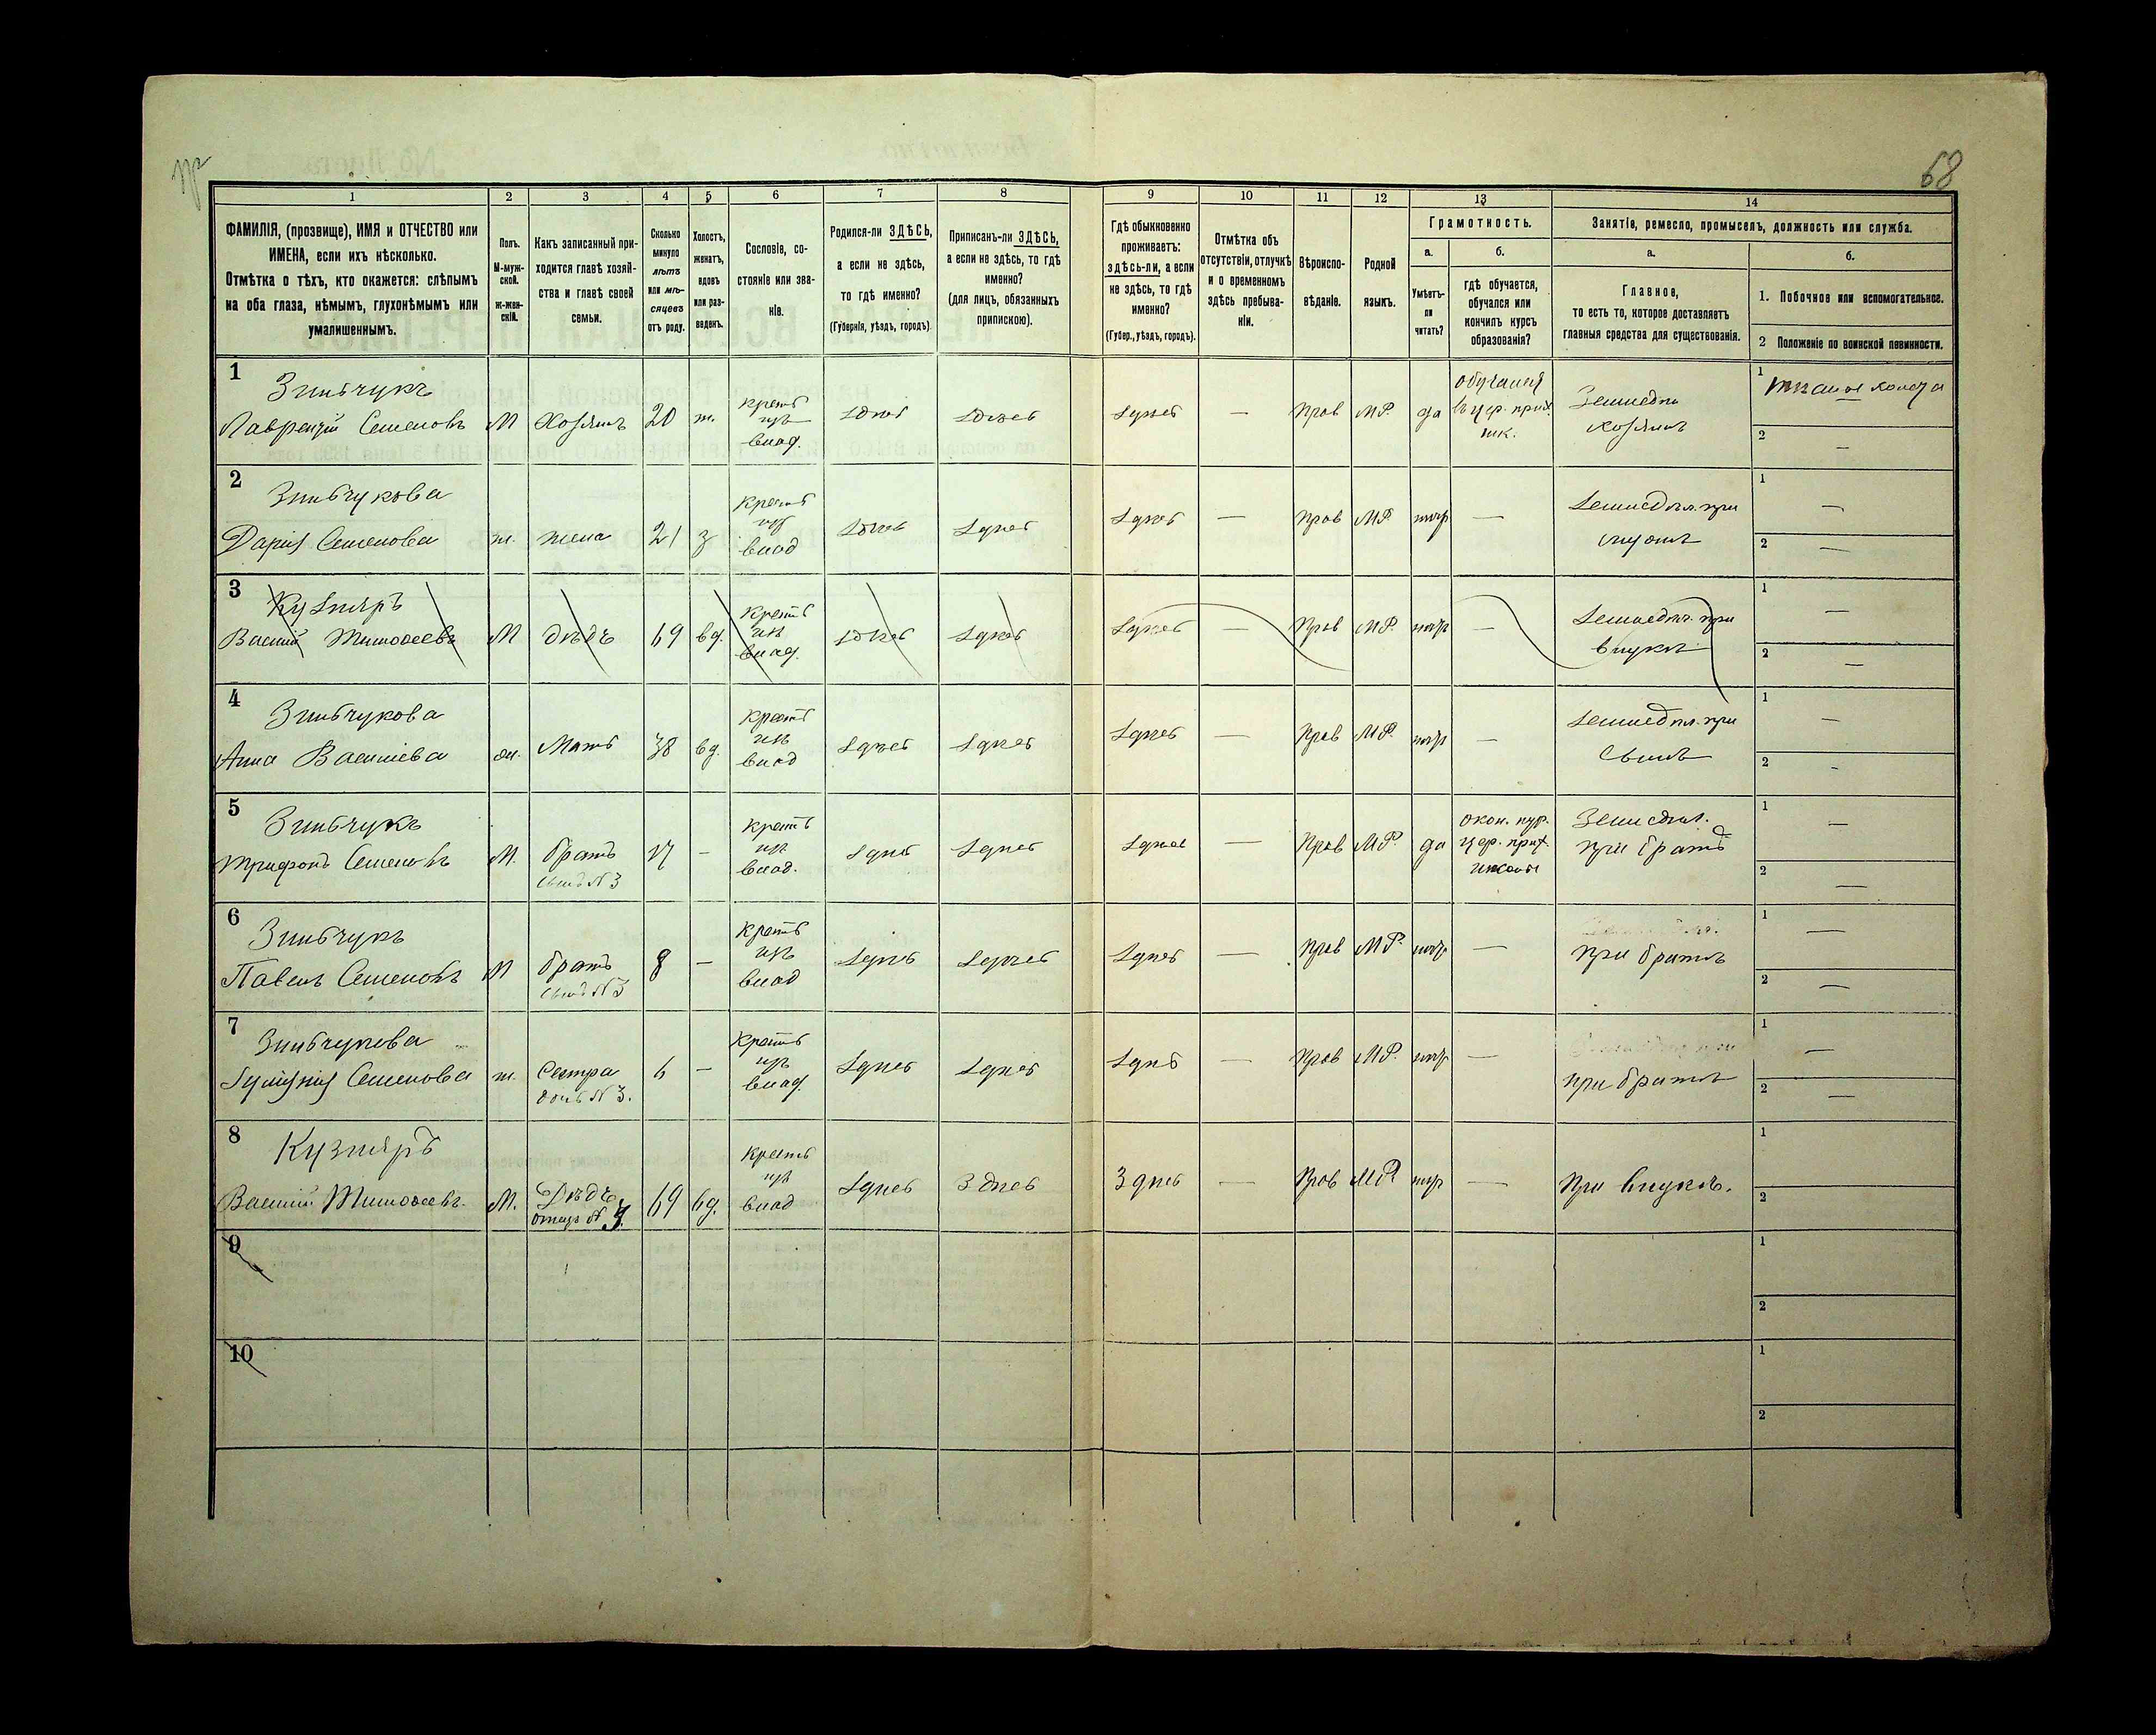 68
1 2 3 4 5 6 7 8 9 10 11 12 13 14
ФАМИЛІЯ, (прозвище), ИМЯ и ОТЧЕСТВО или
ИМЕНА, если ихъ нѣсколько.
Отмѣтка о тѣхъ, кто окажется: слѣпымъ
на оба глаза, нѣмымъ, глухонѣмымъ или
умалишеннымъ.
Полъ.
М-муж-
ской.
Ж-жен-
скій.
Какъ записанный при-
ходится главѣ хозяй-
ства и главѣ своей
семьи.
Сколько
минуло
лѣтъ
или мѣ-
сяцевъ
отъ роду.
Холостъ,
женатъ,
вдовъ
или раз-
веденъ.
Сословіе, со-
стояніе или зва-
ніе.
Родился-ли ЗДѢСЬ,
а если не здѣсь,
то гдѣ именно?
(Губернія, уѣздъ, городъ).
Приписанъ-ли ЗДѢСЬ,
а если не здѣсь, то гдѣ
именно?
(для лицъ, обязанныхъ
припискою).
Гдѣ обыкновенно
проживаетъ:
здѣсь-ли, а если
не здѣсь, то гдѣ
именно?
(Губер., уѣздъ, городъ).
Отмѣтка объ
отсутствіи, отлучкѣ
и о временномъ
здѣсь пребыва-
ніи.
Вѣроиспо-
вѣданіе.
Родной
языкъ.
Грамотность.
а.
Умѣетъ-
ли
читать?
б.
гдѣ обучается,
обучался или
кончилъ курсъ
образованія?
Занятіе, ремесло, промыселъ, должность или служба.
а.
Главное,
то есть то, которое доставляетъ
главныя средства для существованія.
б.
1. Побочное или вспомогательное.
2 Положеніе по воинской повинности.
1
Зинбчукъ
Лаврентій Семеновъ М Хозяинъ 20 ж. крест из влад. здесь здесь здесь — Прав М.Р. да
обучался
въ цер. прих
шк.
Земледѣл
хозяинъ
1
2 —
2
Зинбчукова
Дарія Семенова ж. жена 21 з крест из влад здесь здесь здесь — Прав М.Р. негр —
земледѣл. при
мужѣ
1 —
2 —
3
Кузняръ
Василій Тимофеевъ М дѣдъ 69 вд. крест из влад. здесь здесь здесь — Прав М.Р. негр —
земледѣл. при
внукѣ
1 —
2 —
4
Зинбчукова
Анна Васильева ж. Мать 38 вд. крест из влад здесь здесь здесь — Прав М.Р. негр —
земледѣл. при
сынѣ
1 —
2 -
5
Зинбчукъ
Трифонъ Семеновъ М. братъ — крест из влад. здесь здесь здесь — Прав М.Р. да
сынъ N 3
окон. кур.
цер. прих.
школы
Земледѣл.
при братѣ
1 —
2 —
6
Зинбчукъ
Павелъ Семеновъ М братъ 8 — крест из влад здесь здесь здесь — Прав М.Р. негр —
сынъ N 3
при братѣ
1 —
2 —
7
Зинбчукова
Семенова ж. Сестра 6 — крест из влад. здесь здесь здесь — Прав М.Р. негр —
дочь N 3.
при братѣ
1 —
2 —
8
Кузняръ
Василій Тимофеевъ. М. Дѣдъ 69 вд. крест из влад здесь здесь здесь — Прав М.Р. негр —
отецъ N
при внукѣ.
1
2
9
1
2
10
1
2